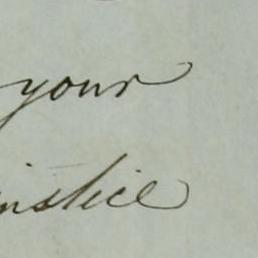 your
instice